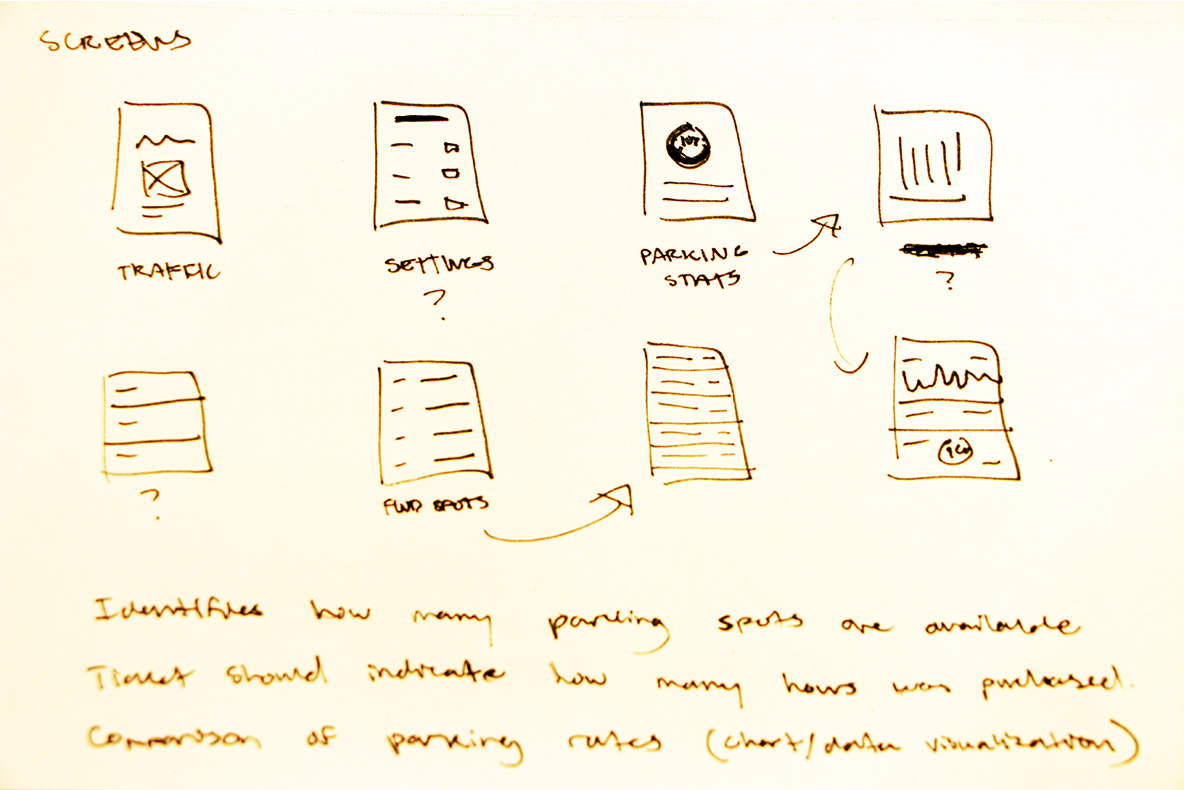 SCREENS
TRAFFIC
SETTINGS
?
PARKING
STATS
?
?
FIND SPOTS
Identifies how many parking spots are available
Ticket should indicate how many hours was purchased.
Comparison of parking rates (chart/data visualization)